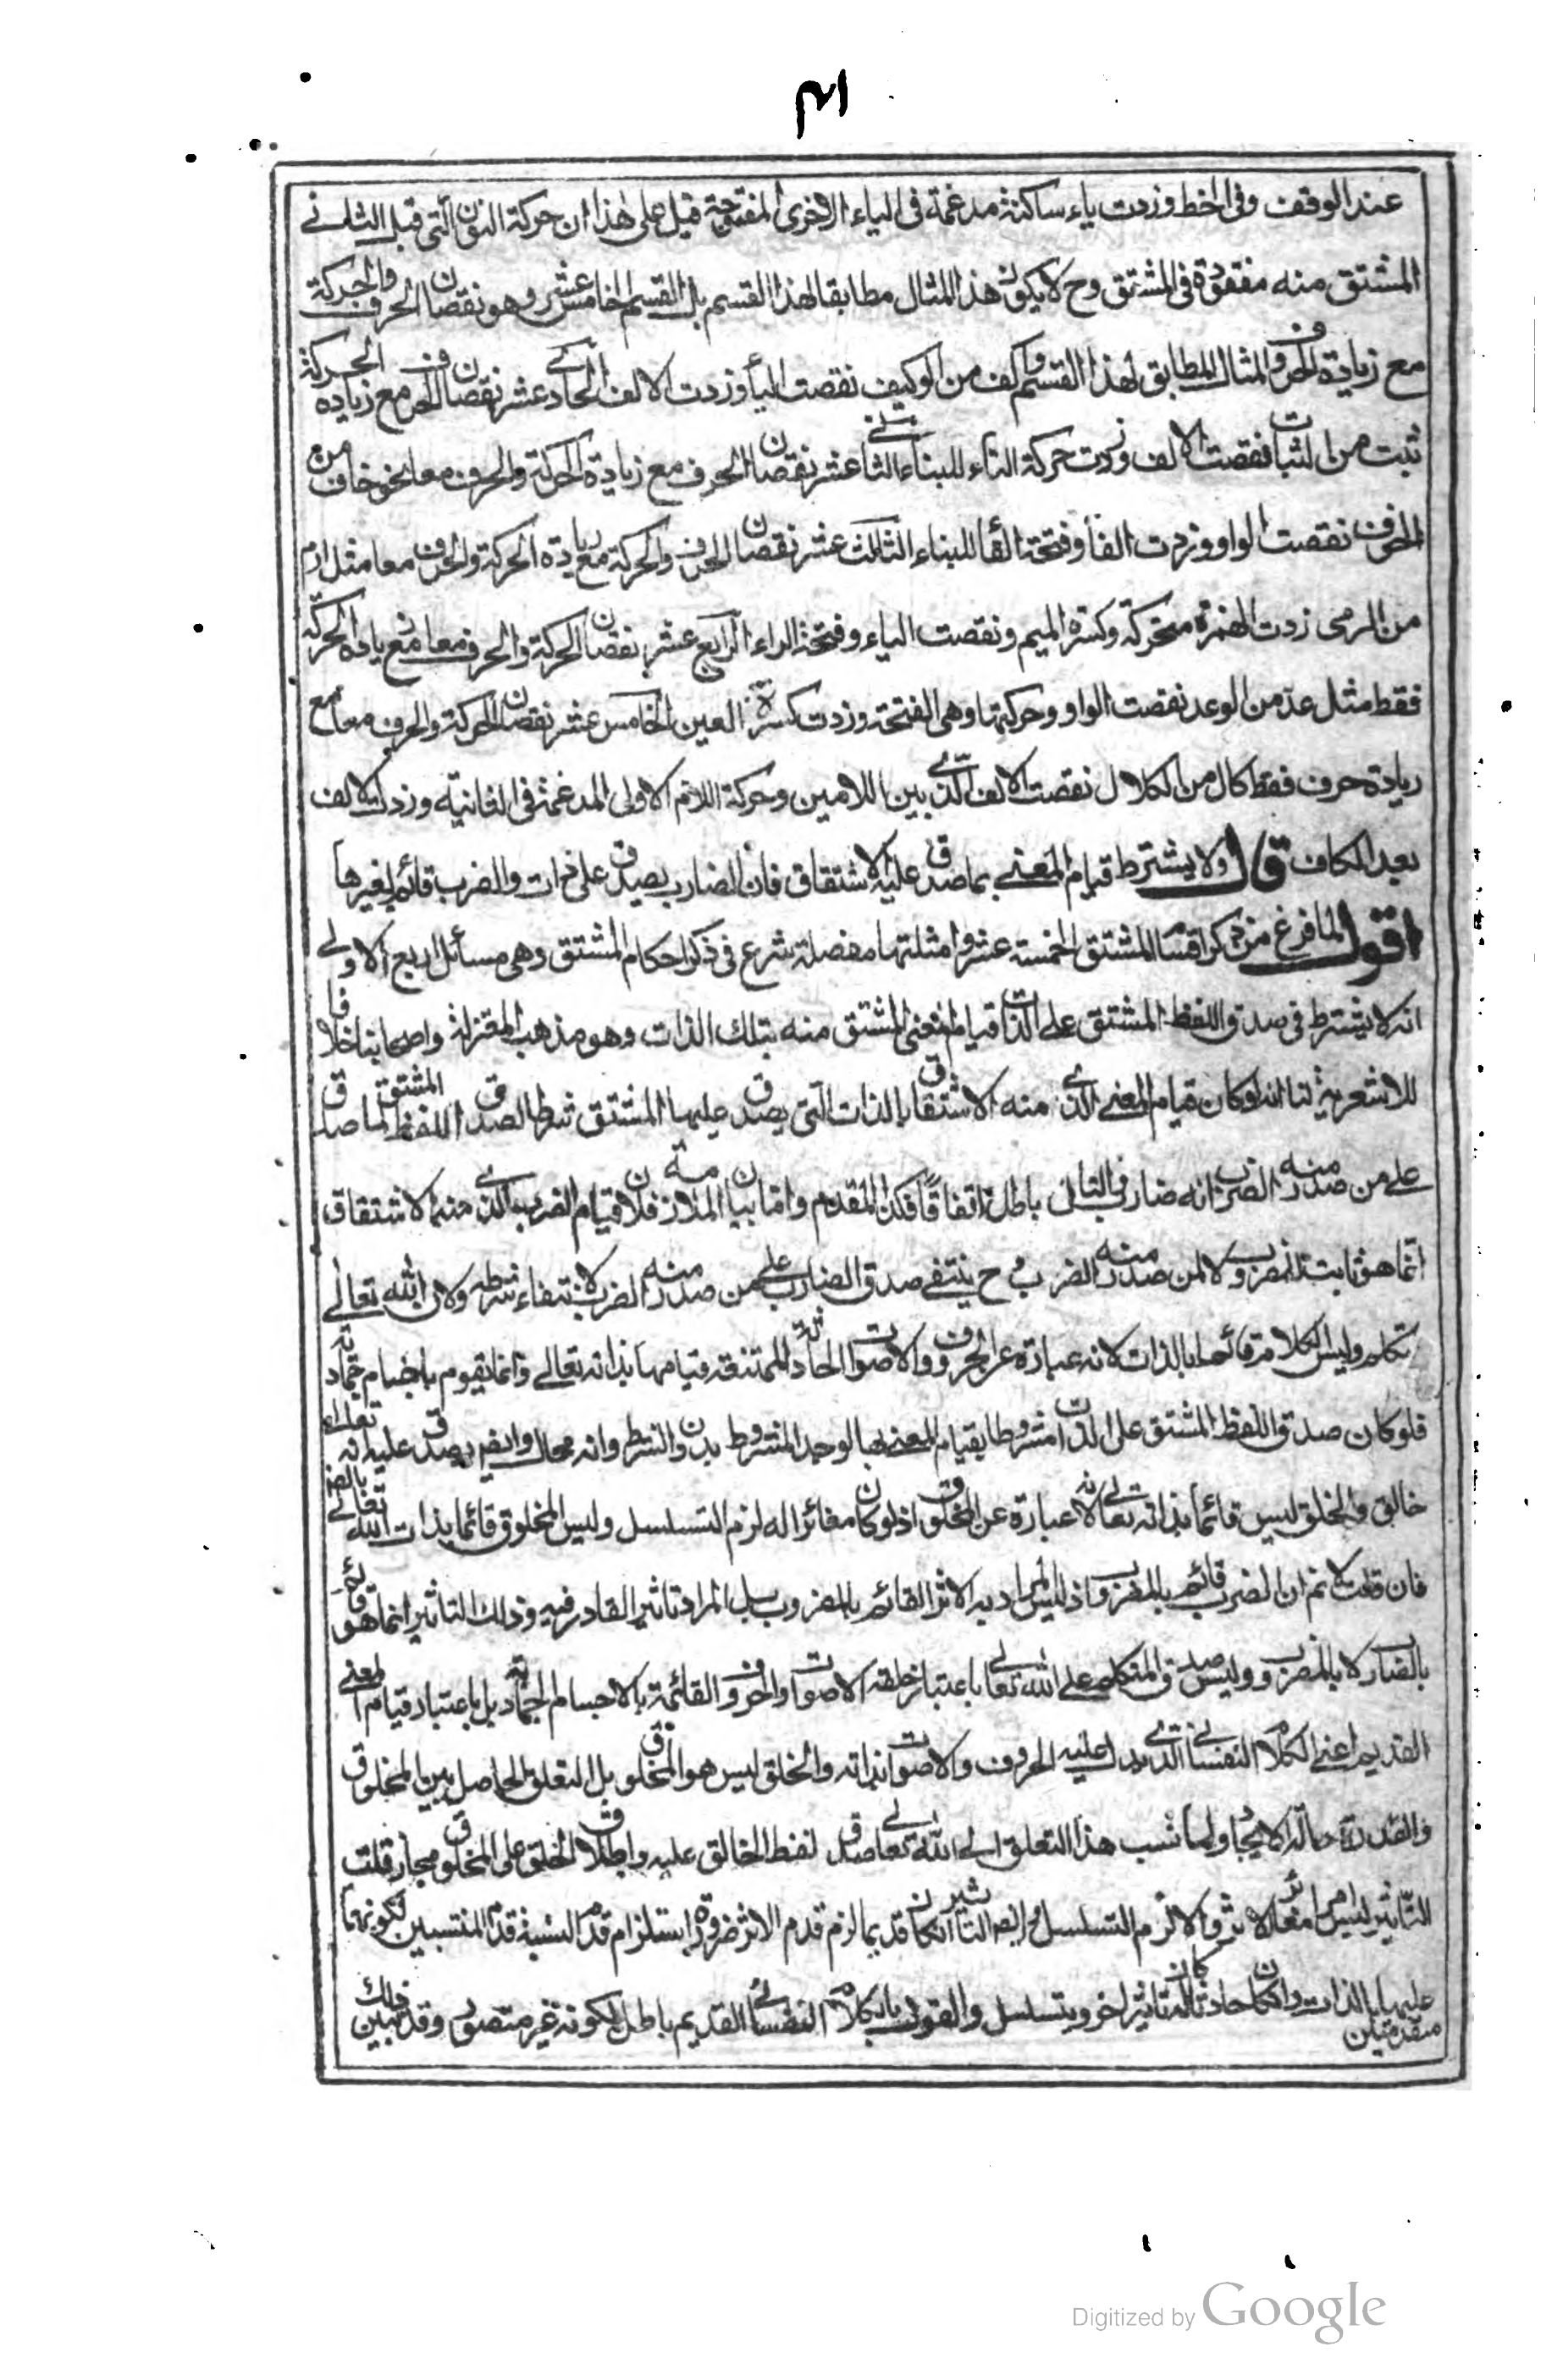 ٣١
عند الوقف وفى الخط وزدت ياء ساكنة مدغمة فى الياء الاخرى المفتوحة قيل على هذا ان حركة النون التى قبل الثانى
المشتق منه مفقودة فى المشتق وح لا يكون هذا المثال مطابقا لهذا القسم بل القسم الخامس عشر وهو نقصان الحرف والحركة
مع زيادة الحرف والمثال المطابق لهذا القسم واكف من الوكيف نقصت الياء وزدت الالف الحادى عشر نقصان الحرف مع زيادة الحركة
ثبت من الثبات نقصت الالف وزدت حركة التاء للبناء الثانى عشر نقصان الحرف مع زيادة الحركة والحرف معا نحو خاف من
الخوف نقصت الواو وزدت الفا وفتحة الفا للبناء الثالث عشر نقصان الحرف والحركة مع زيادة الحركة والحرف معا مثل ارم
من الرمى زدت الهمزة متحركة وكسرة الميم ونقصت الياء وفتحة الراء الرابع عشر نقصان الحركة والحرف معا مع زيادة الحركة
فقط مثل عد من الوعد نقصت الواو وحركتها وهى الفتحة وزدت كسرة العين الخامس عشر نقصان الحركة والحرف معا مع
زيادة حرف فقط كال من الكلال نقصت الالف الذى بين اللامين وحركة اللام الاولى المدغمة فى الثانية وزدت الالف
بعد الكاف قال ولا يشترط قيام المعنى بما صدق عليه الاشتقاق فان الضارب يصدق على ذات والضرب قائم بغيرها
اقول لما فرغ من ذكر اقسام المشتق الخمسة عشر وامثلتها مفصلة شرع فى ذكر احكام المشتق وهى مسائل اربع الاولى
انه لا يشترط فى صدق اللفظ المشتق على الذات قيام المعنى المشتق منه بتلك الذات وهو مذهب المعتزلة واصحابنا خلافا
للاشعرية لنا انه لو كان قيام المعنى الذى منه الاشتقاق بالذات التى يصدق عليها المشتق شرطا لصدق اللفظ المشتق لما صدق
على من صدر منه الضرب انه ضارب والتالى باطل اتفاقا فكذا المقدم واما بيان الملازمة فلان قيام الضرب الذى منه الاشتقاق
انما هو ثابت للمضروب لا لمن صدر منه الضرب وح ينتفى صدق الضارب على من صدر منه الضرب لانتفاء شرطه ولان الله تعالى
متكلم وليس الكلام قائما بالذات لانه عبارة عن الحروف والاصوات الحادثة الممتنعة قيامها بذاته تعالى وانما يقوم باجسام جمادية
فلو كان صدق اللفظ المشتق على الذات مشروطا بقيام المعنى بها لوجد المشروط بدون الشرط وانه محال وايضا يصدق عليه تعالى انه
خالق والخلق ليس قائما بذاته تعالى لانه عبارة عن المخلوق اذ لو كان مغائرا له لزم التسلسل وليس المخلوق قائما بذات الله تعالى بالضرورة
فان قلت لا نم ان الضرب قائم بالمضروب اذ ليس المراد به الاثر القائم بالمضروب بل المراد تاثير القادر فيه وذلك التاثير انما هو قائم
بالضارب لا بالمضروب وليس صدق المتكلم على الله تعالى باعتبار خلقه الاصوات والحروف القائمة بالاجسام الجمادية بل باعتبار قيام المعنى
القديم اعنى الكلام النفسانى الذى يدل عليه الحروف والاصوات بذاته والخلق ليس هو المخلوق بل التعلق الحاصل بين المخلوق
والقدرة حالة الايجاد ولما نسب هذا التعلق الى الله تعالى صدق لفظ الخالق عليه واطلاق الخلق على المخلوق مجاز قلت
التاثير ليس امرا مغائرا للاثر والا لزم التسلسل وايضا التاثير ان كان قديما لزم قدم الاثر ضرورة استلزام قدم النسبة قدم المنتسبين لكونهما
متقدمين عليها بالذات وان كان حادثا كان لتاثير اخر ويتسلسل والقول بالكلام النفسانى القديم باطل لكونه غير متصور وقد تبين ذلك
Digitized by Google